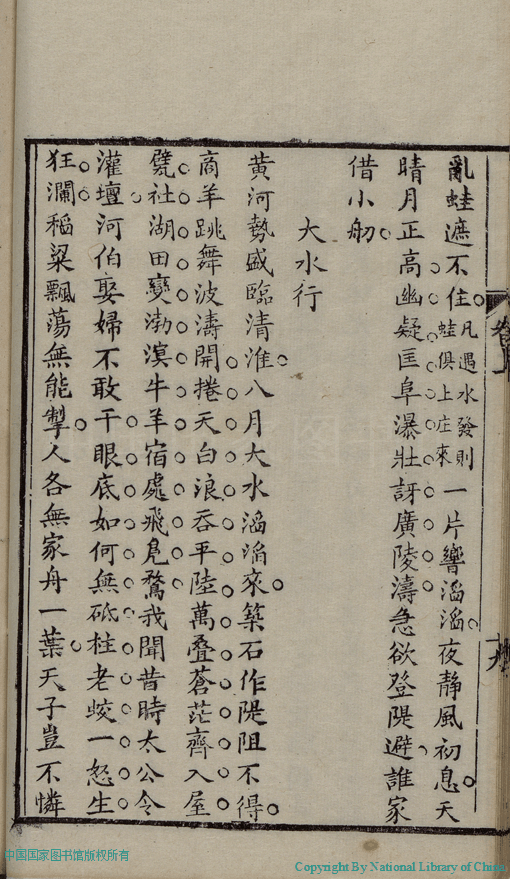 亂蛙遮不住凡遇水發則蛙俱上庄來一片響滔滔夜靜風初息天
晴月正高幽疑匡阜瀑壯訝廣陵濤急欲登隄避誰家
借小舠
大水行
黄河勢盛臨清淮八月大水滔滔來築石作隄阻不得
商羊跳舞波濤開捲天白浪吞平陸萬叠蒼茫齊入屋
甓社湖田變渤溟牛羊宿處飛鳧鶩我聞昔時太公令
灌壇河伯娶婦不敢干眼底如何無砥柱老蛟一怒生
狂瀾稻粱飄蕩無能掣人各無家舟一葉天子豈不憐
中国国家图书馆版权所有
Copyright By National Library of China